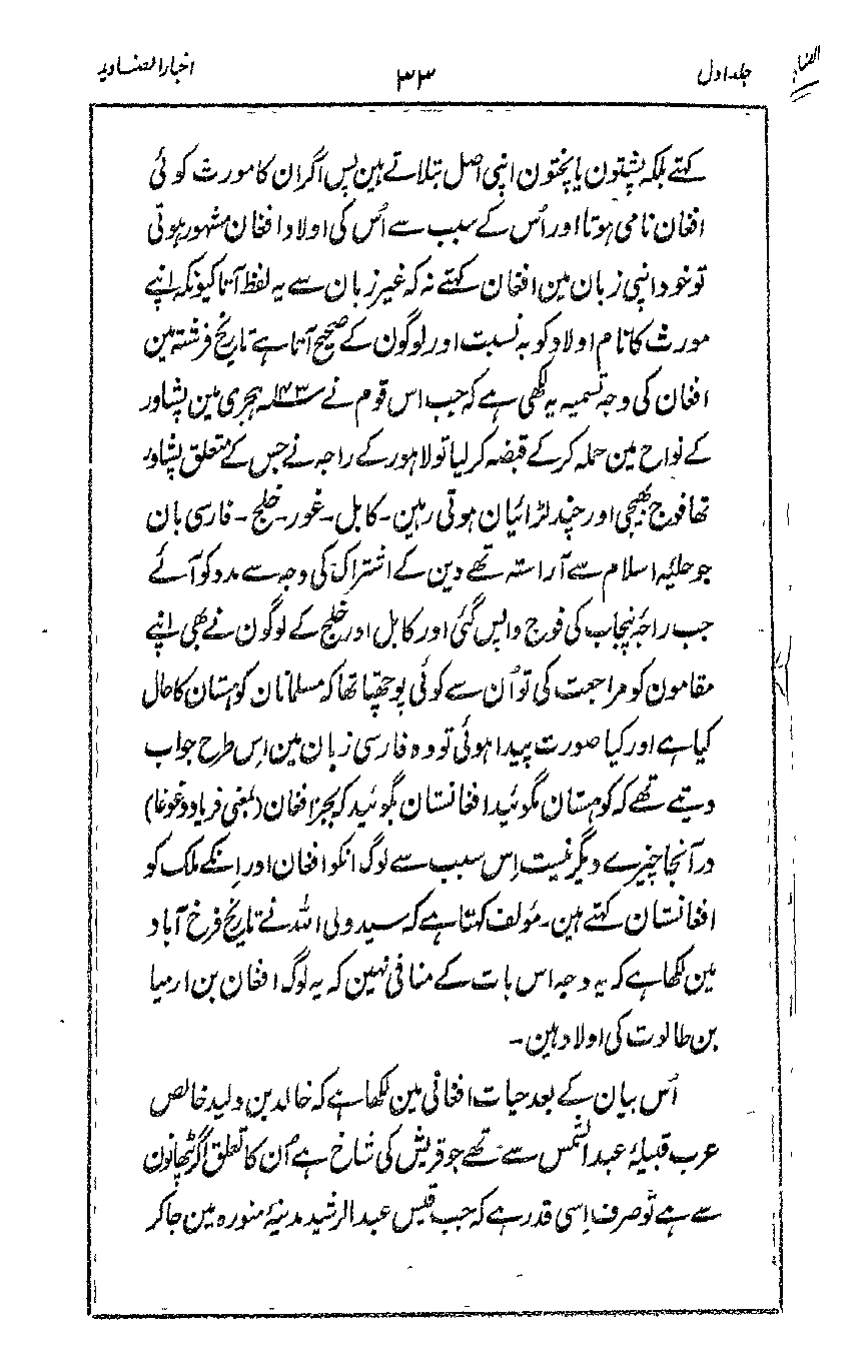 جلد اول ۳۳ اخبار الصنادید
کہتے بلکہ پشتون یا پختون اپنی اصل بتلاتے ہین پس اگر ان کا مورث کوئی
افغان نامی ہوتا اور اُس کے سبب سے اُس کی اولاد افغان مشہور ہوتی
تو خود اپنی زبان مین افغان کہتے نہ کہ غیر زبان سے یہ لفظ آتا کیونکہ اپنے
مورث کا نام اولاد کو بہ نسبت اور لوگون کے صحیح آتا ہے تاریخ فرشتہ مین
افغان کی وجہ تسمیہ یہ لکھی ہے کہ جب اس قوم نے ۱۴۳ ہجری مین پشاور
کے نواح مین حملہ کرکے قبضہ کر لیا تو لاہور کے راجہ نے جس کے متعلق پشاور
تھا فوج بھیجی اور چند لڑائیان ہوتی رہین۔ کابل۔ غور۔ خلج۔ فارسی بان
جو حلیۂ اسلام سے آراستہ تھے دین کے اشتراک کی وجہ سے مدد کو آئے
جب راجۂ پنجاب کی فوج واپس گئی اور کابل اور خلج کے لوگون نے بھی اپنے
مقامون کو مراجعت کی تو اُن سے کوئی پوچھتا تھا کہ مسلمانان کوہستان کا حال
کیا ہے اور کیا صورت پیدا ہوئی تو وہ فارسی زبان مین اِس طرح جواب
دیتے تھے کہ کوہستان مگوئید افغانستان بگوئید کہ بجز افغان (بمعنی فریاد و غوغا)
در آنجا چیزے دیگر نیست اِس سبب سے لوگ انکو افغان اور اِنکے ملک کو
افغانستان کہتے ہین۔ مؤلف کہتا ہے کہ سید ولی اللہ نے تاریخ فرخ آباد
مین لکھا ہے کہ یہ وجہ اس بات کے منافی نہین کہ یہ لوگ افغان بن ارمیا
بن طالوت کی اولاد ہین۔
اُس بیان کے بعد حیات افغانی مین لکھا ہے کہ خالد بن ولید خالص
عرب قبیلۂ عبد الشمس سے تھے جو قریش کی شاخ ہے اُن کا تعلق اگر پٹھانون
سے ہے تو صرف اِسی قدر ہے کہ جب قیس عبد الرشید مدینۂ منورہ مین جا کر